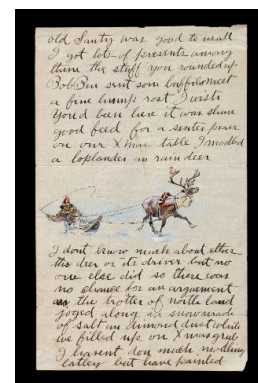 old Santy was good to us all
I got lots of presents among
them the stuff you rounded up
Bob Ben sent som buffalo meet
a fine hump rost I wish
You'd been here it was shure
good feed for a senter peace
on our Xmas table I modled
a loplander in rain deer
I dont know much about ether
the deer or its driver but no
one else did so there was
no chance for an arguement
as the trotter of north land
joged along in snow made
of salt an dimond dust while
we filled up on Xmas grub
I havent don much modling
latley but have painted